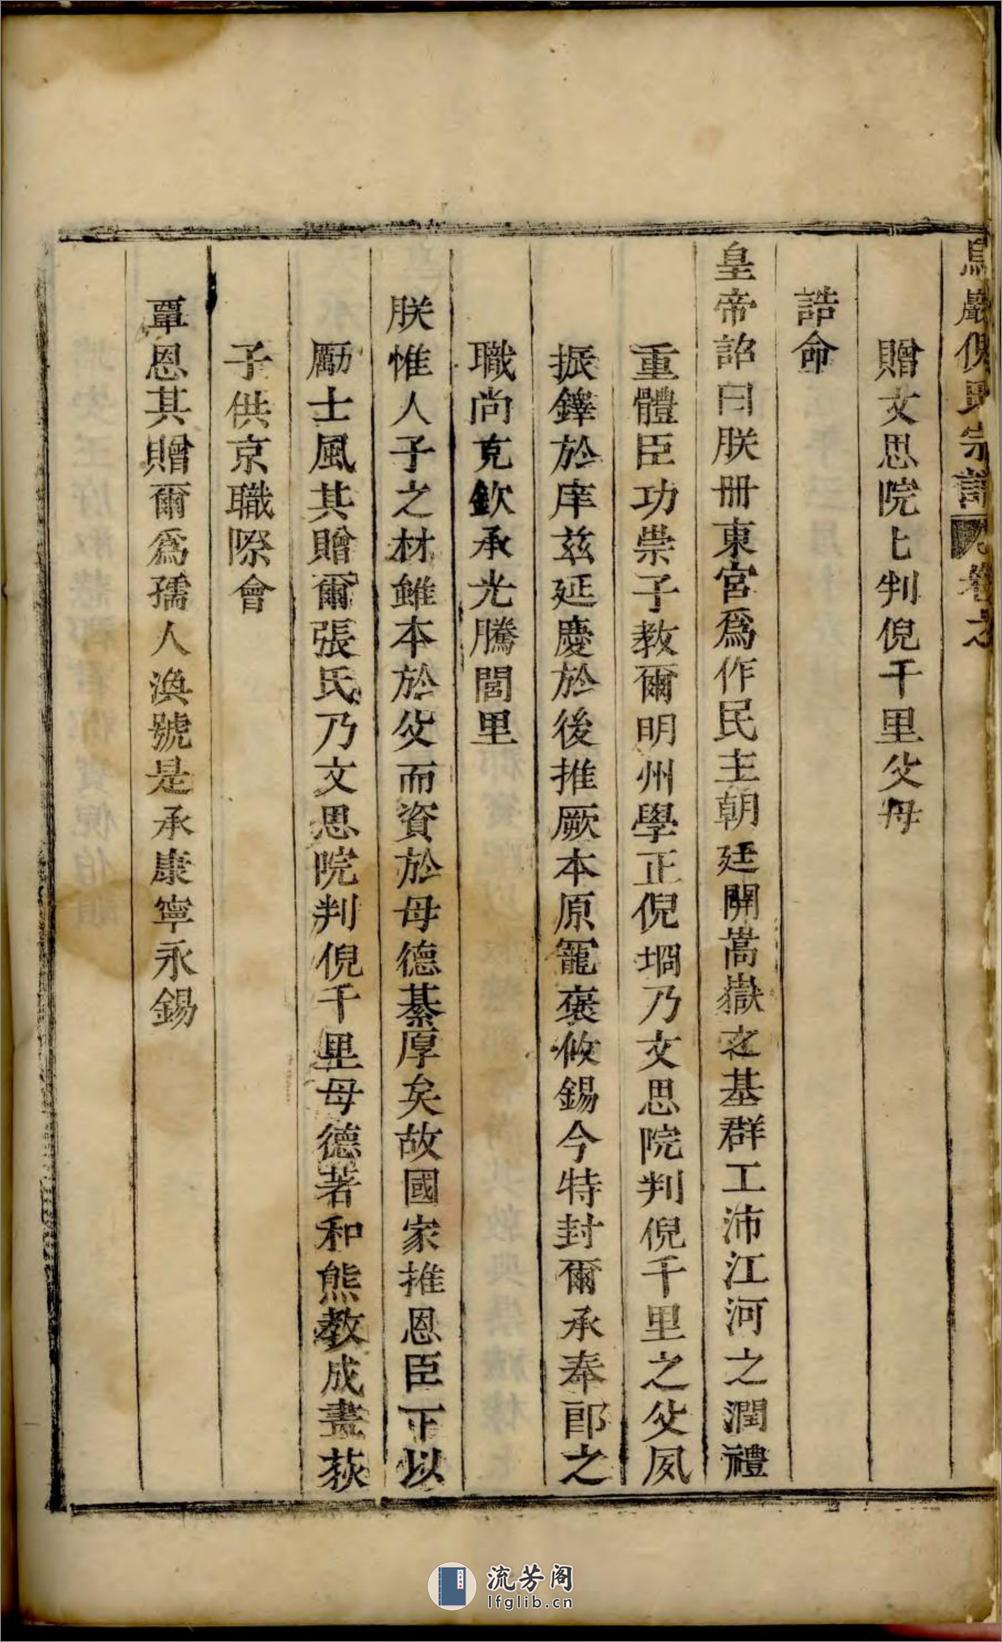 巖倪氏宗譜 卷之
贈文思院七判倪千里父母
誥命
皇帝詔曰朕冊東宮爲作民主朝廷開嵩嶽之基群工沛江河之潤禮
重體臣功崇子教爾明州學正倪堈乃文思院判倪千里之父夙
振鐸於庠茲延慶於後推厥本原寵褒攸錫今特封爾承奉郎之
職尚克欽承光騰閭里
朕惟人子之材雖本於父而資於母德綦厚矣故國家推恩臣下以
勵士風其贈爾張氏乃文思院判倪千里母德著和熊教成畫荻
子供京職際會
覃恩其贈爾爲孺人渙號是承康寧永錫
流芳阁
lfglib.cn